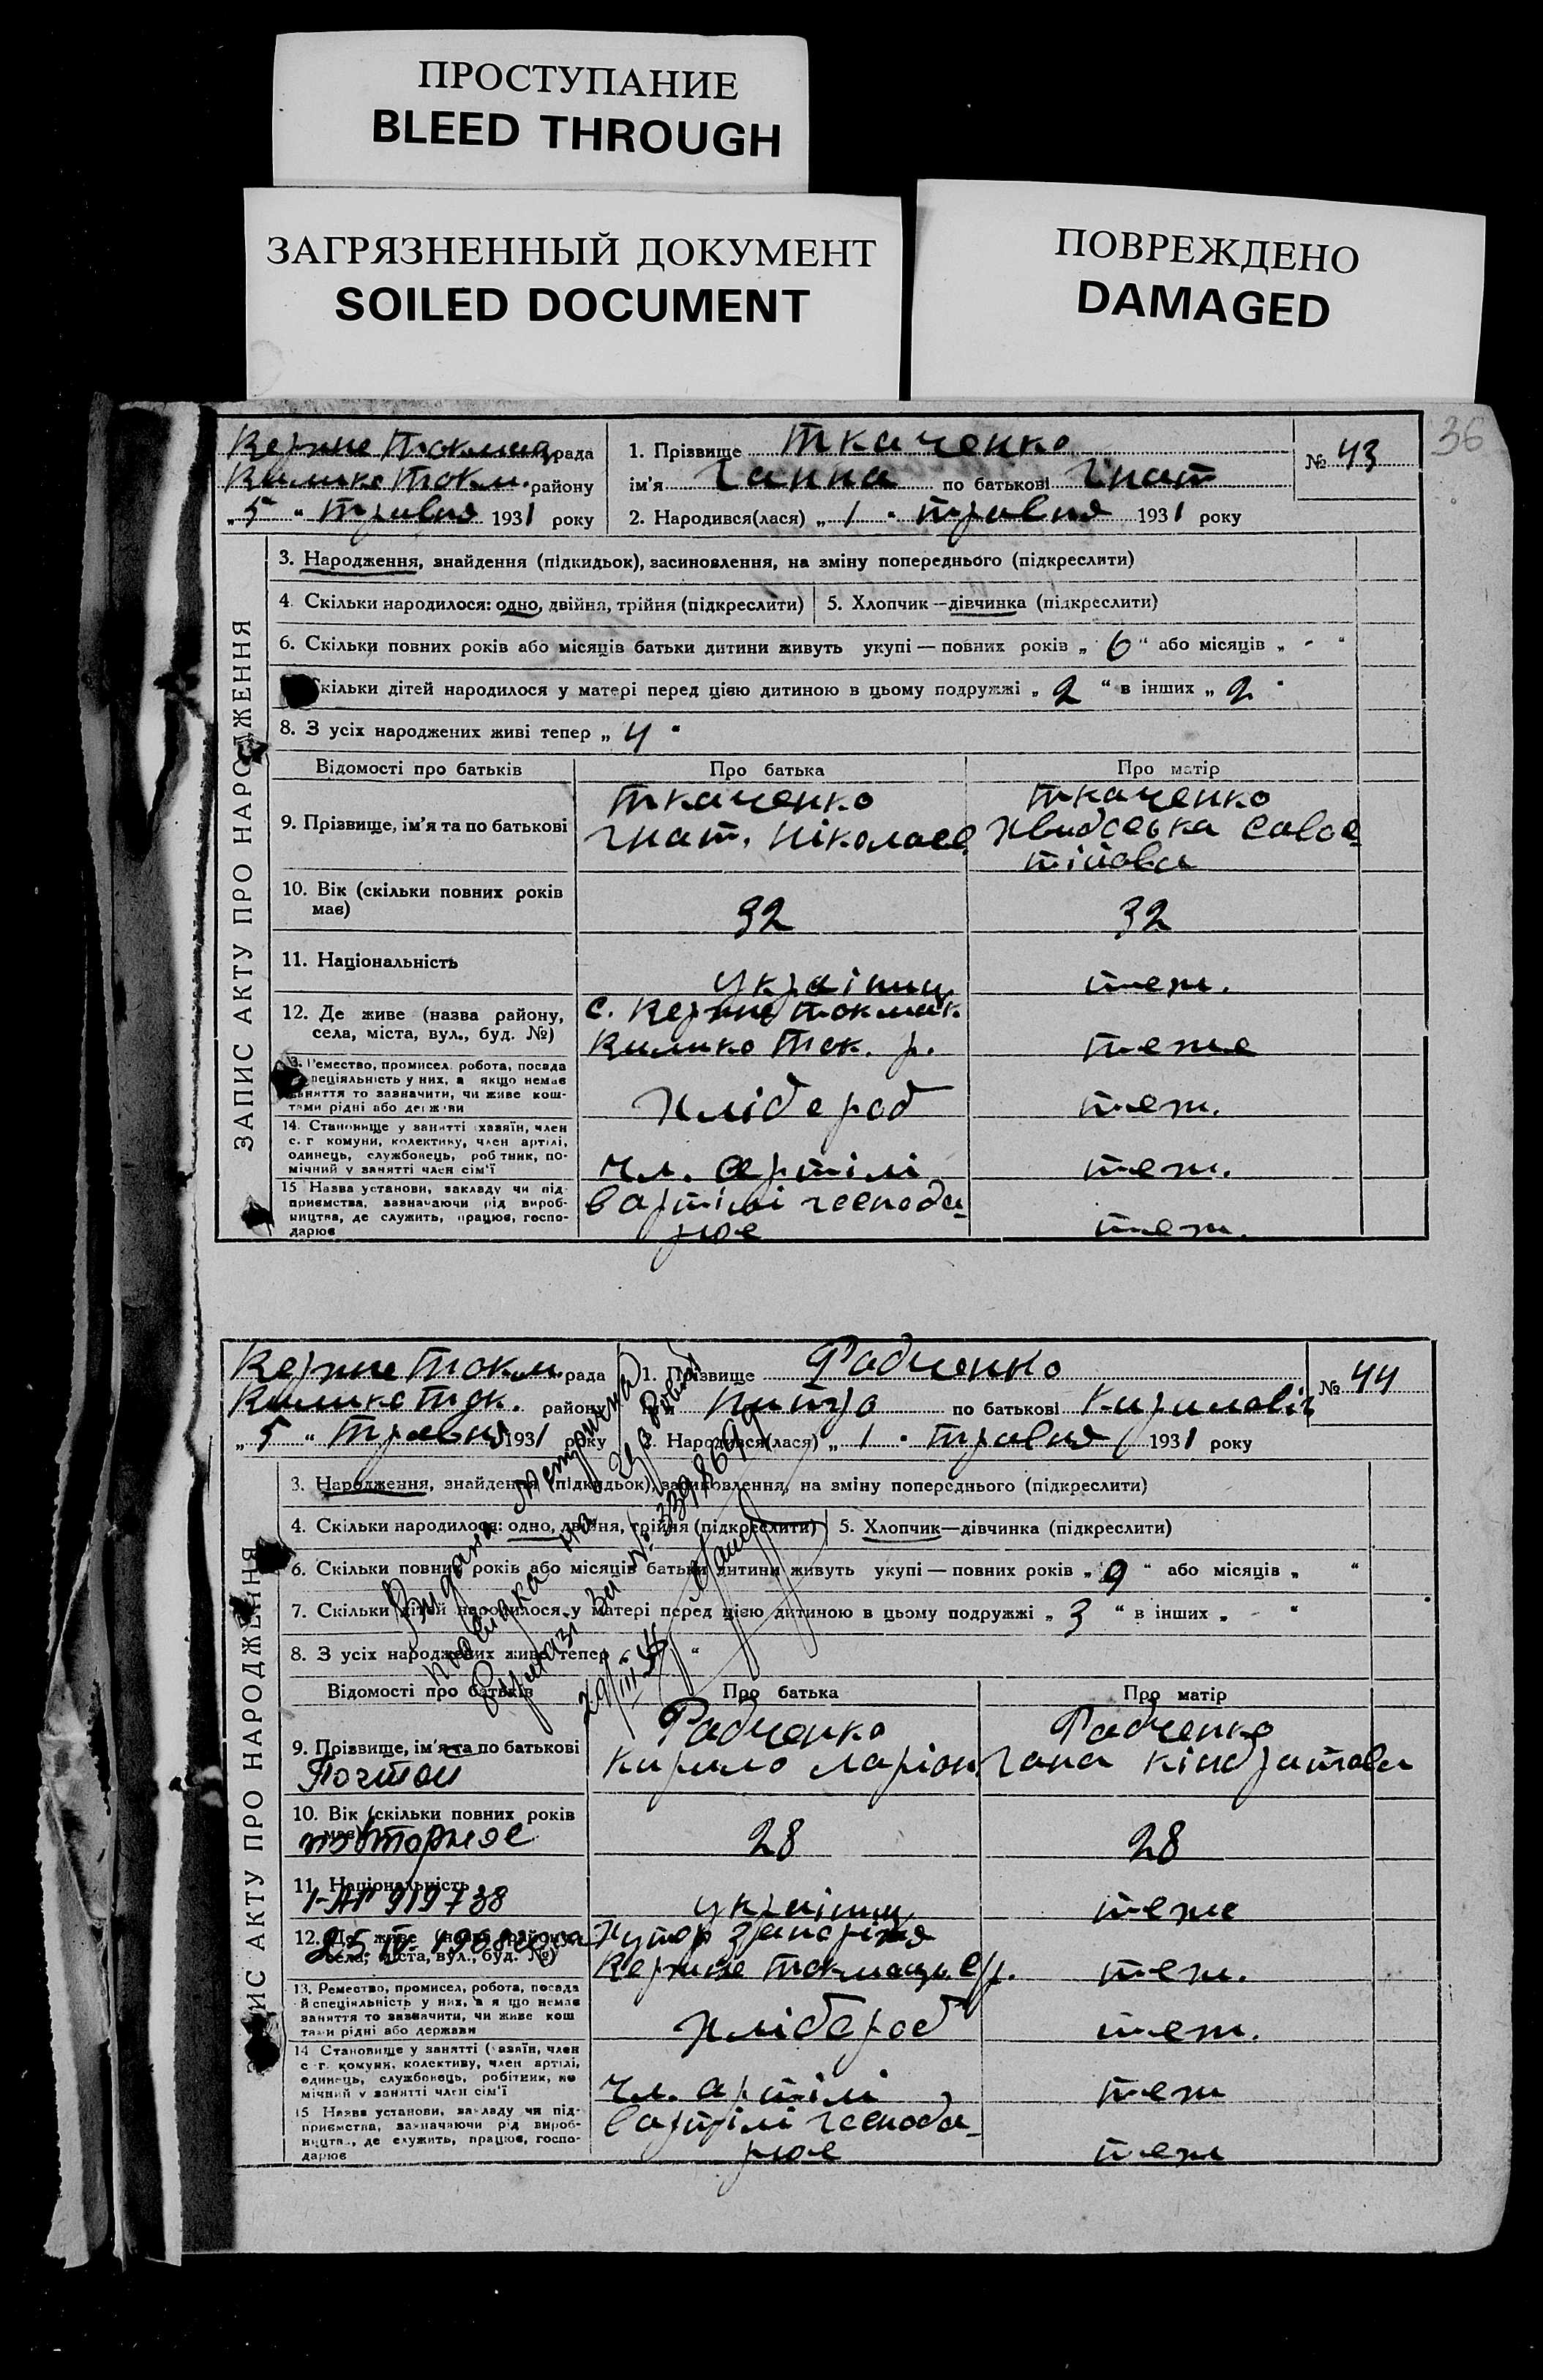 ПРОСТУПАНИЕ
BLEED THROUGH
ЗАГРЯЗНЕННЫЙ ДОКУМЕНТ
SOILED DOCUMENT
ПОВРЕЖДЕНО
DAMAGED
36
ЗАПИС АКТУ ПРО НАРОДЖЕННЯ
рада
району
„5“ травня 1931 року
1. Прізвище Ткаченко
ім'я Ганна по батькові Гнат
2. Народився(лася) „1“ травня 1931 року
№ 43
3. Народження, знайдення (підкидьок), засиновлення, на зміну попереднього (підкреслити)
4. Скільки народилося: одно, двійня, трійня (підкреслити)
5. Хлопчик—дівчинка (підкреслити)
6. Скільки повних років або місяців батьки дитини живуть укупі — повних років „6“ або місяців „-“
кільки дітей народилося у матері перед цією дитиною в цьому подружжі „2“ в інших „2“
8. З усіх народжених живі тепер „4“
Відомості про батьків
Про батька
Про матір
9. Прізвище, ім'я та по батькові
Ткаченко
Гнат. Ніколаєв.
Ткаченко
10. Вік (скільки повних років має)
32
32
11. Національність
українці
теж.
12. Де живе (назва району,
села, міста, вул., буд. №)
с. Керпне Токмак
Ток. р.
теже
Ремество, промисел, робота, посада
спеціяльність у них, а якщо немає
заняття то зазначити, чи живе кош-
тами рідні або держави
Хлібороб
теж.
14. Становище у занятті хазяїн, член
с. г. комуни, колективу, член артілі,
одинець, службовець, робітник, по-
мічний у занятті член сім'ї
чл. артілі
теж.
15 Назва установи, закладу чи під-
приємства, зазначаючи рід вироб-
ництва, де служить, працює, госпо-
дарює
в артілі господа-
рює
теж.
ЗАПИС АКТУ ПРО НАРОДЖЕННЯ
рада
району
„5“ травня 1931 року
1. Прізвище Радченко
по батькові Кирилович
2. Народився(лася) „1“ травня 1931 року
№ 44
3. Народження, знайдення (підкидьок), засиновлення, на зміну попереднього (підкреслити)
4. Скільки народилося: одно, двійня, трійня (підкреслити)
5. Хлопчик—дівчинка (підкреслити)
6. Скільки повних років або місяців батьки дитини живуть укупі — повних років „9“ або місяців „ “
7. Скільки дітей народилося у матері перед цією дитиною в цьому подружжі „3“ в інших „-“
8. З усіх народжених живі тепер
Видана метрична
Відомості про батьків
Про батька
Про матір
9. Прізвище, ім'я та по батькові
Радченко
Кирило Ларіон.
Радченко
Гана Кіндратова
10. Вік (скільки повних років має)
повторное
28
28
11. Національність
I-АП 919738
українці
теже
12. Де живе (назва району,
села, міста, вул., буд. №)
Хутор
теж.
13. Ремество, промисел, робота, посада
й спеціяльність у них, а я що немає
заняття то зазначити, чи живе кош
тами рідні або держави
Хлібороб
теж.
14 Становище у занятті (хазяїн, член
с г. комуни, колективу, член артілі,
одинець, службовець, робітник, по
мічний у занятті член сім'ї
чл. артілі
теж
15 Назва установи, закладу чи під-
приємства, зазначаючи рід вироб-
ництва, де служить, працює, госпо-
дарює
в артілі господа-
рює
теж